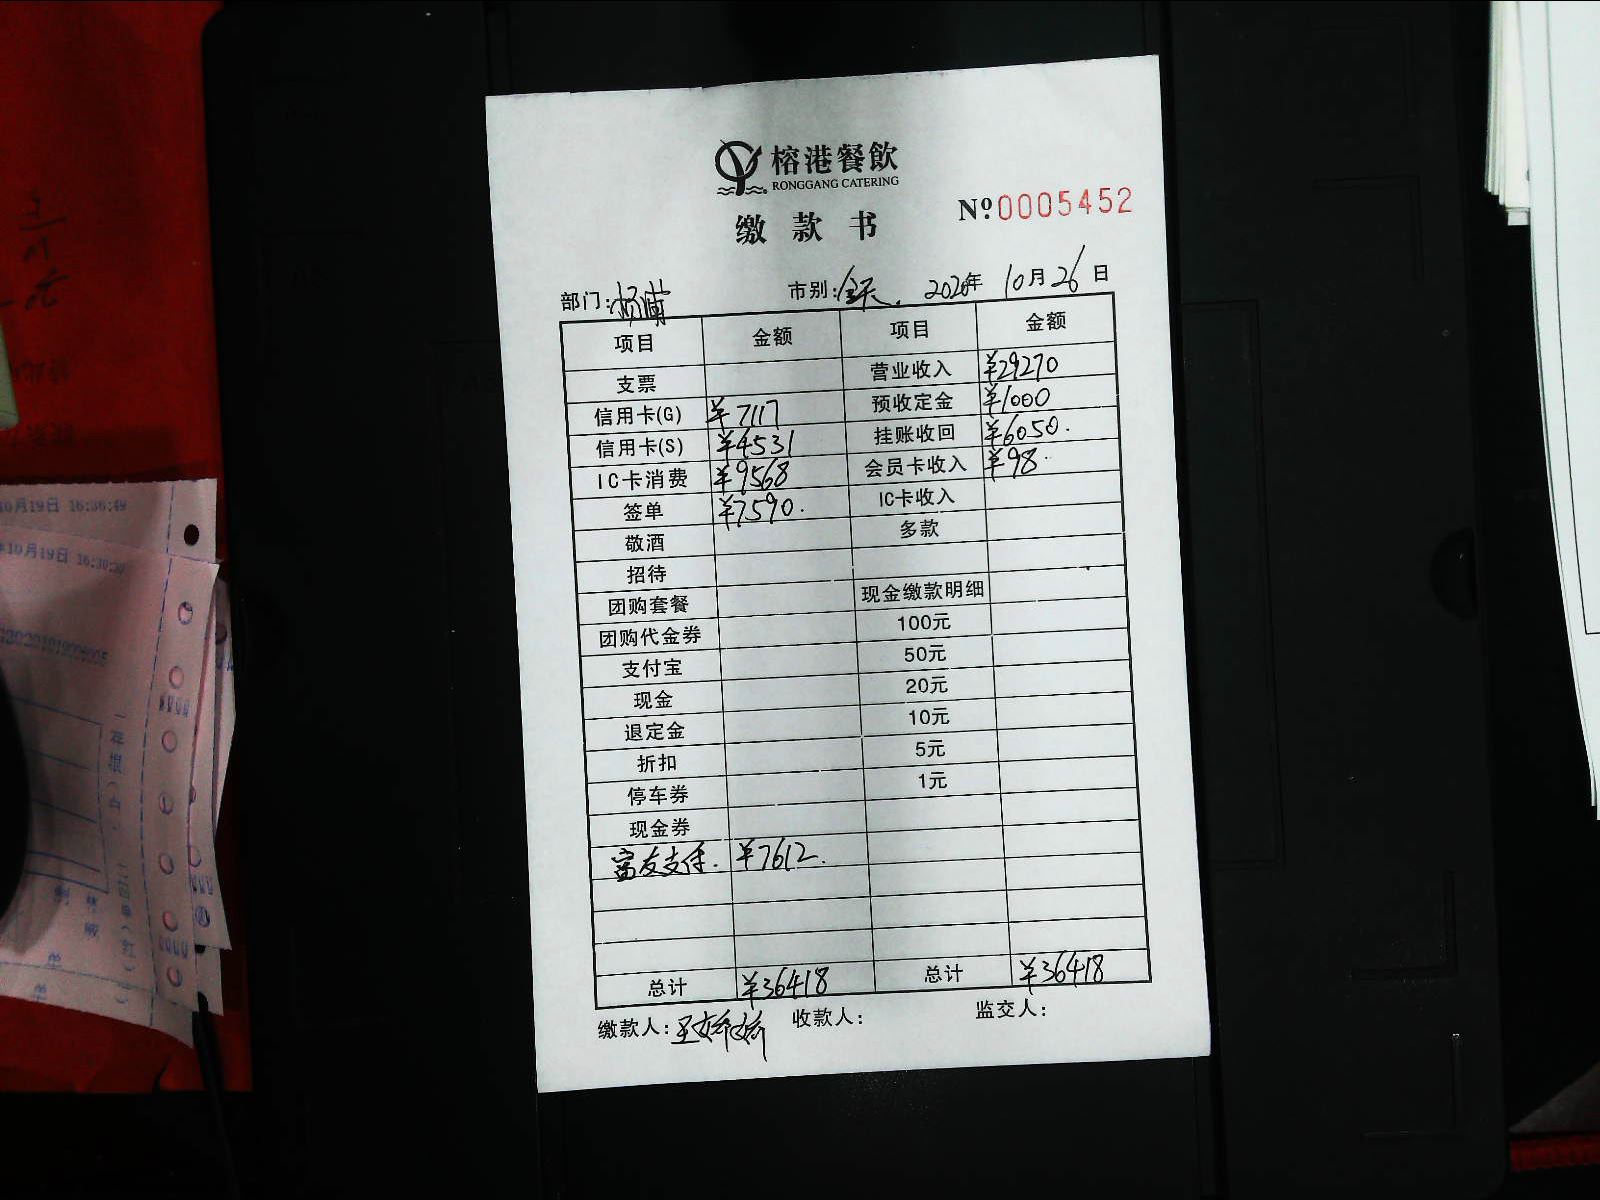 榕港餐飲
RONGGANG CATERING
缴款书
Nº0005452
部门:杨浦 市别:全天. 2020年 10月26日
项目 金额 项目 金额
支票 营业收入 ¥29270
信用卡(G) ¥7117 预收定金 ¥1000
信用卡(S) ¥4531 挂账收回 ¥6050.
IC卡消费 ¥9568 会员卡收入 ¥98
签单 ¥7590. IC卡收入
敬酒 多款
招待
团购套餐 现金缴款明细
团购代金券 100元
支付宝 50元
现金 20元
退定金 10元
折扣 5元
停车券 1元
现金券
富友支付. ¥7612.
总计 ¥36418 总计 ¥36418
缴款人:王娇娇 收款人: 监交人:
10月19日 16:36:49
10月19日 16:36:50